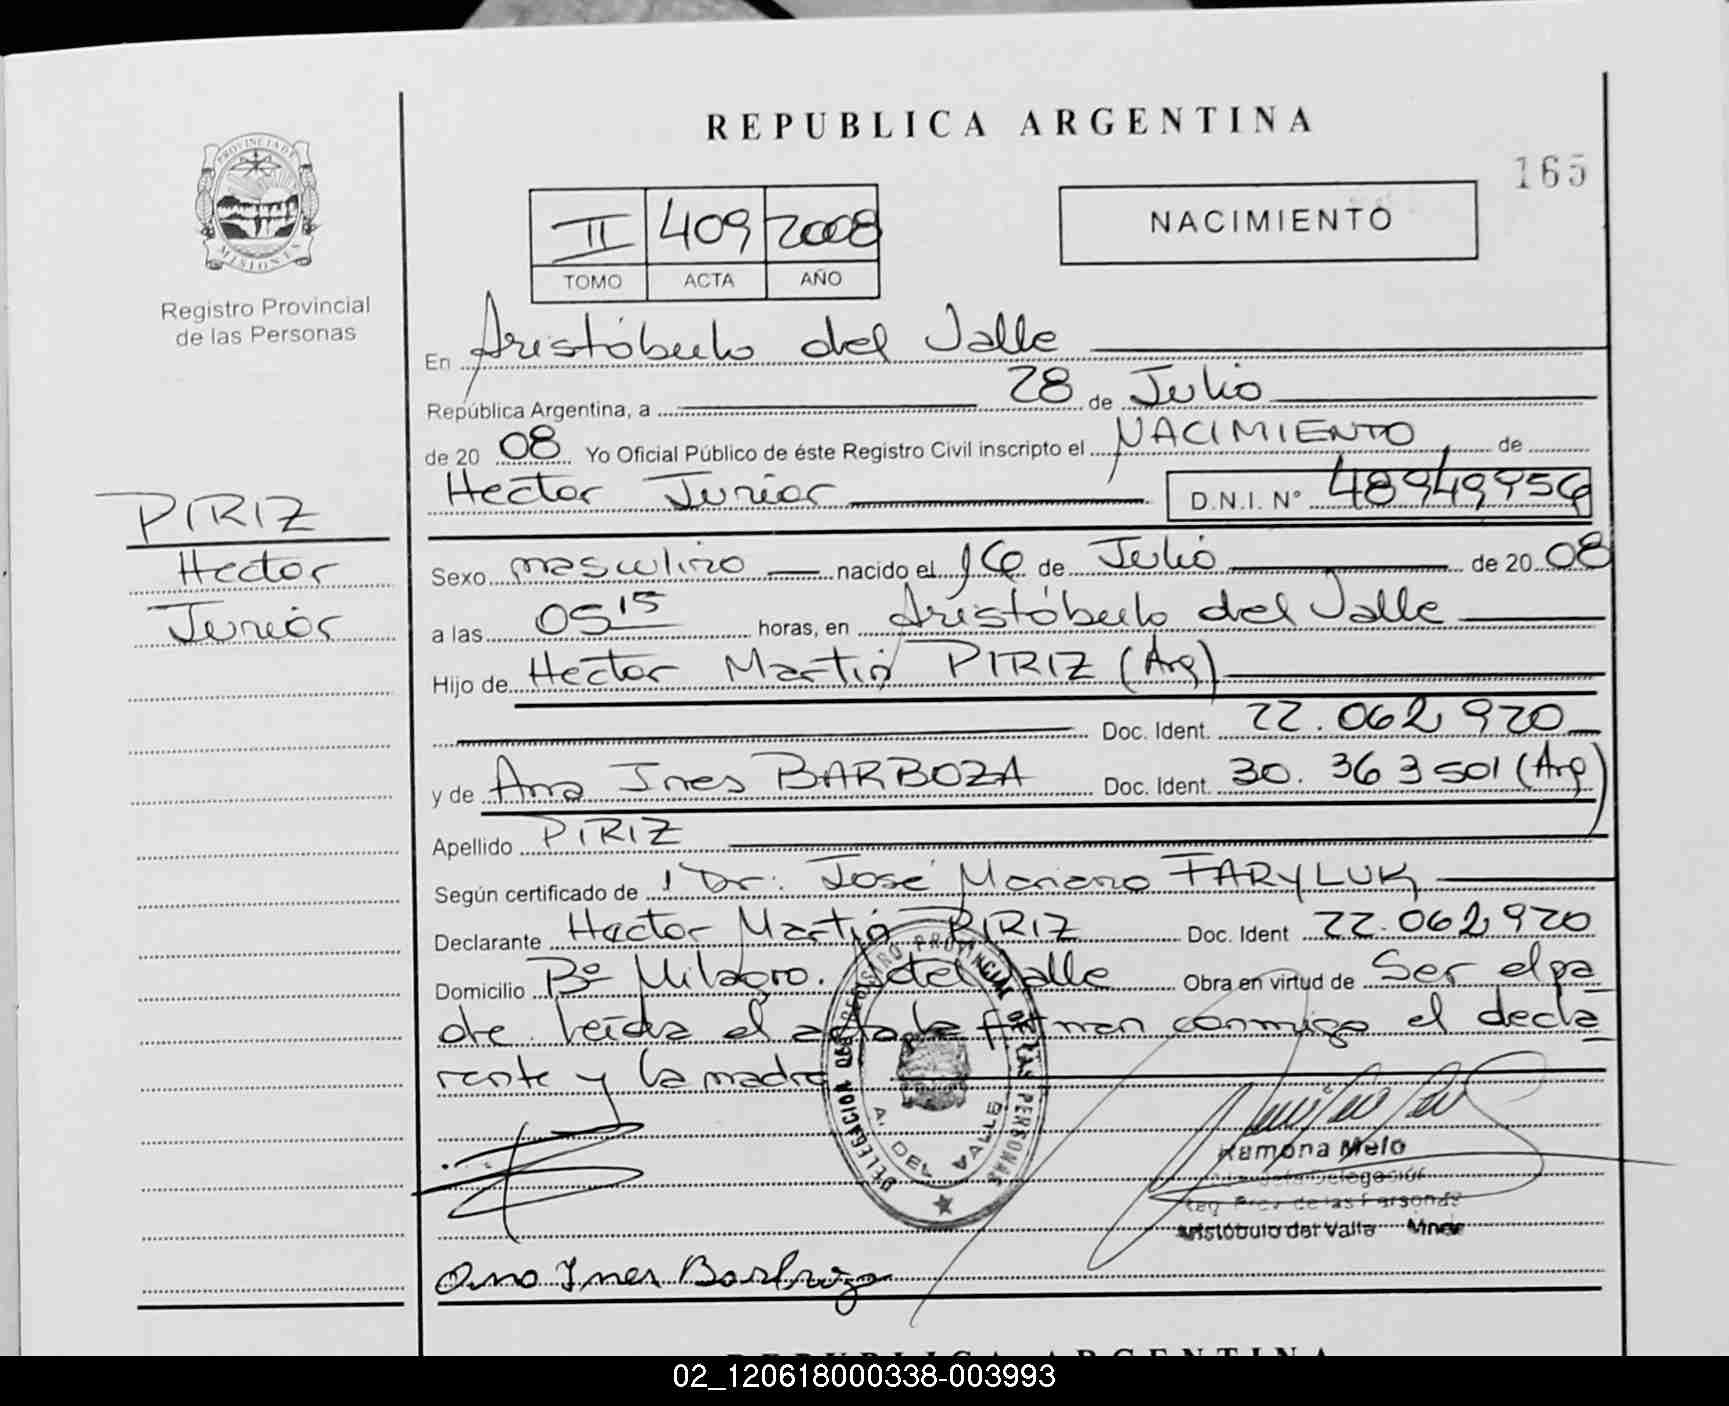 REPUBLICA ARGENTINA
165
PROVINCIA DE
MISIONES
Registro Provincial
de las Personas
II 409 2008
TOMO ACTA AÑO
NACIMIENTO
En Aristóbulo del Valle
República Argentina, a 28 de Julio
de 20 08 Yo Oficial Público de éste Registro Civil inscripto el NACIMIENTO de
Hector Junior D.N.I. Nº 48949956
PIRIZ
Hector
Junior
Sexo masculino nacido el 16 de Julio de 20 08
a las 05 15 horas, en Aristóbulo del Valle
Hijo de Hector Martin PIRIZ (Arg)
Doc. Ident. 22.062920
y de Ana Ines BARBOZA Doc. Ident. 30.363501 (Arg)
Apellido PIRIZ
Según certificado de Dr. José Mariano FARYLUK
Declarante Hector Martin PIRIZ Doc. Ident 22.062920
Domicilio Bº Milagro. A del Valle Obra en virtud de Ser el pa
dre leída el acta la firman conmigo el decla
rante y la madre
DELEGACION DEL REGISTRO PROVINCIAL DE LAS PERSONAS
A. DEL VALLE
Ramona Melo
Delegación
Reg Prov de las Personas
Aristóbulo del Valle Mnes
Ana Ines Barboza
REPUBLICA ARGENTINA
02_120618000338-003993